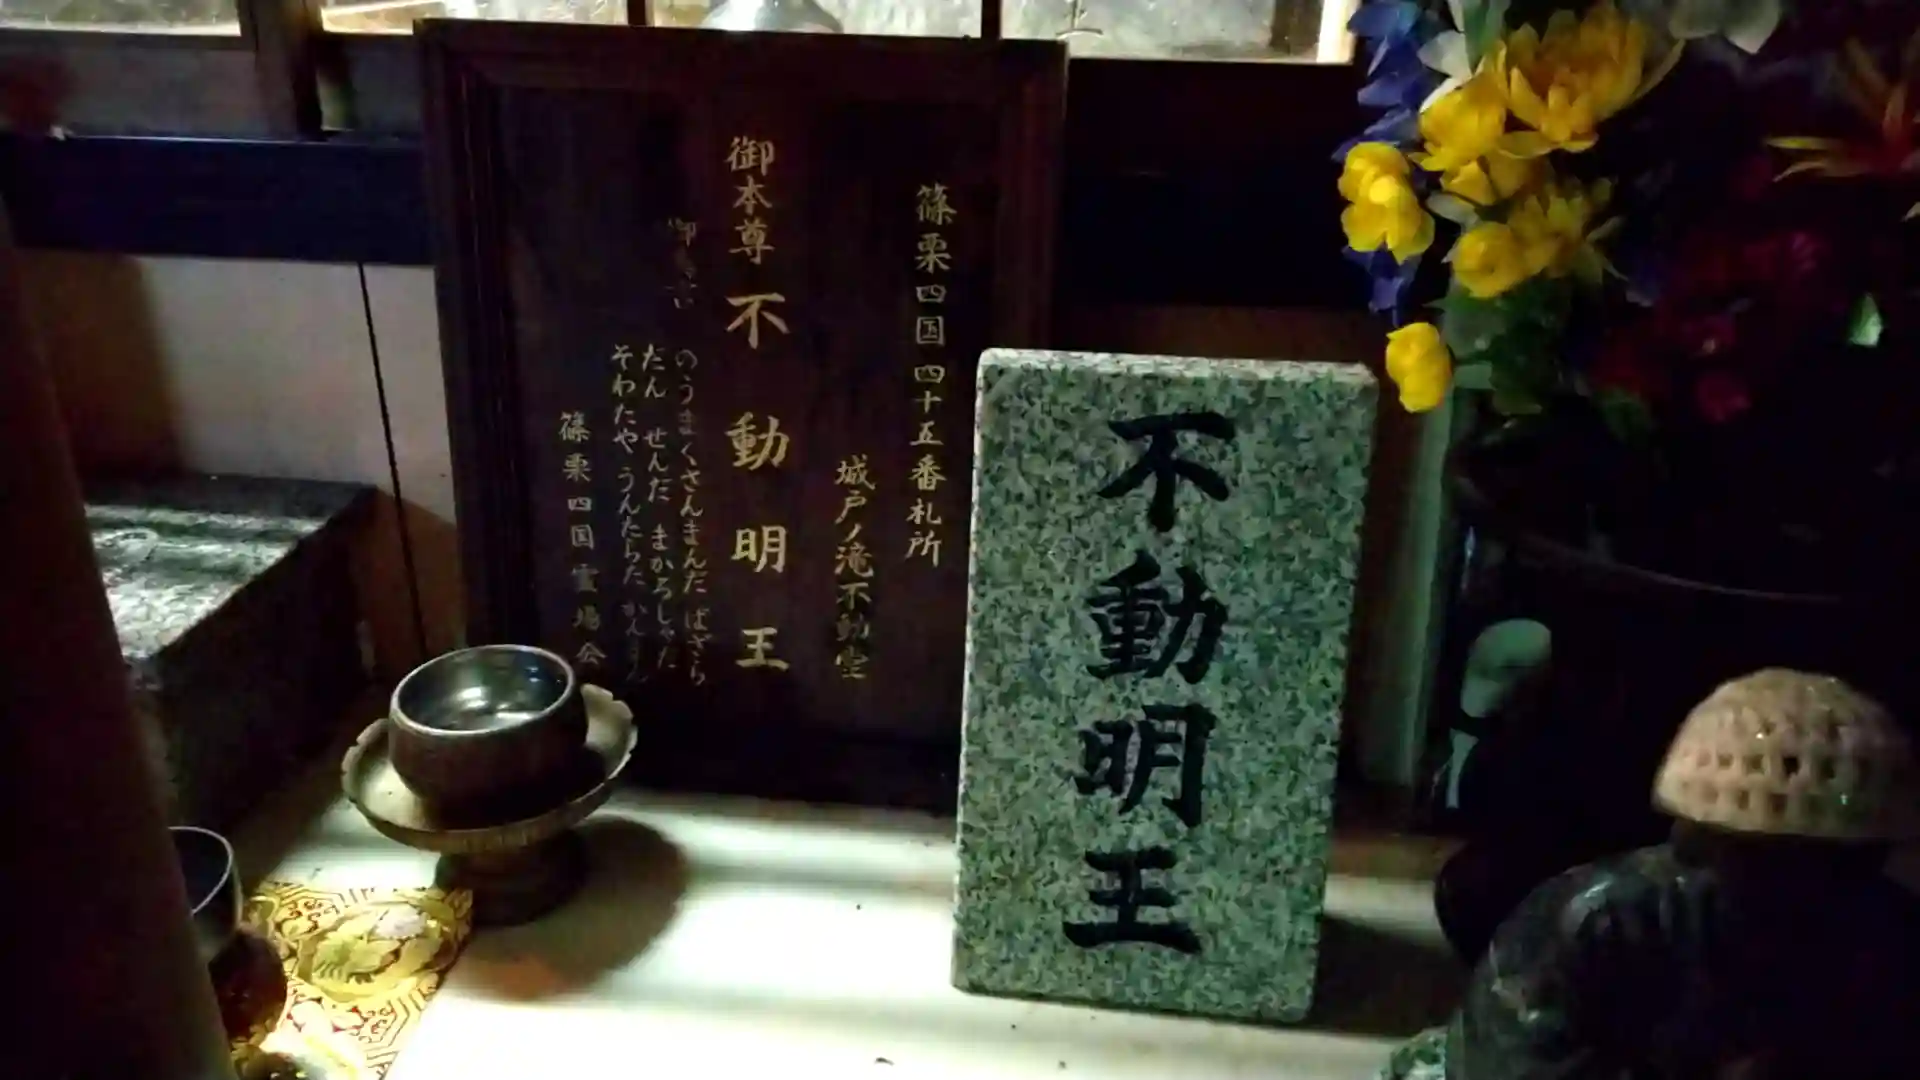 篠栗四国四十五番札所
城戸ノ滝不動堂
御本尊 不動明王
御真言
のうまくさんまんだ ばざら
だん せんだ まかろしゃだ
そわたや うんたらた かんまん
篠栗四国霊場会
不動明王